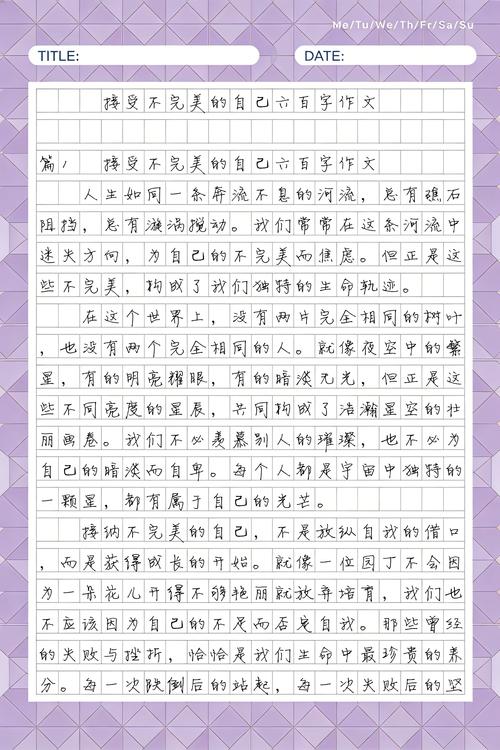 Me/Tu/We/Th/Fr/Sa/Su
TITLE: DATE:
接受不完美的自己六百字作文
篇1 接受不完美的自己六百字作文
人生如同一条奔流不息的河流，总有礁石
阻挡，总有漩涡搅动。我们常常在这条河流中
迷失方向，为自己的不完美而焦虑。但正是这
些不完美，构成了我们独特的生命轨迹。
在这个世界上，没有两片完全相同的树叶
，也没有两个完全相同的人。就像夜空中的繁
星，有的明亮耀眼，有的暗淡无光，但正是这
些不同亮度的星辰，共同构成了浩瀚星空的壮
丽画卷。我们不必羡慕别人的璀璨，也不必为
自己的暗淡而自卑。每个人都是宇宙中独特的
一颗星，都有属于自己的光芒。
接纳不完美的自己，不是放纵自我的借口
，而是获得成长的开始。就像一位园丁不会因
为一朵花儿开得不够艳丽就放弃培育，我们也
不应该因为自己的不足而否定自我。那些曾经
的失败与挫折，恰恰是我们生命中最珍贵的养
分。每一次跌倒后的站起，每一次失败后的坚